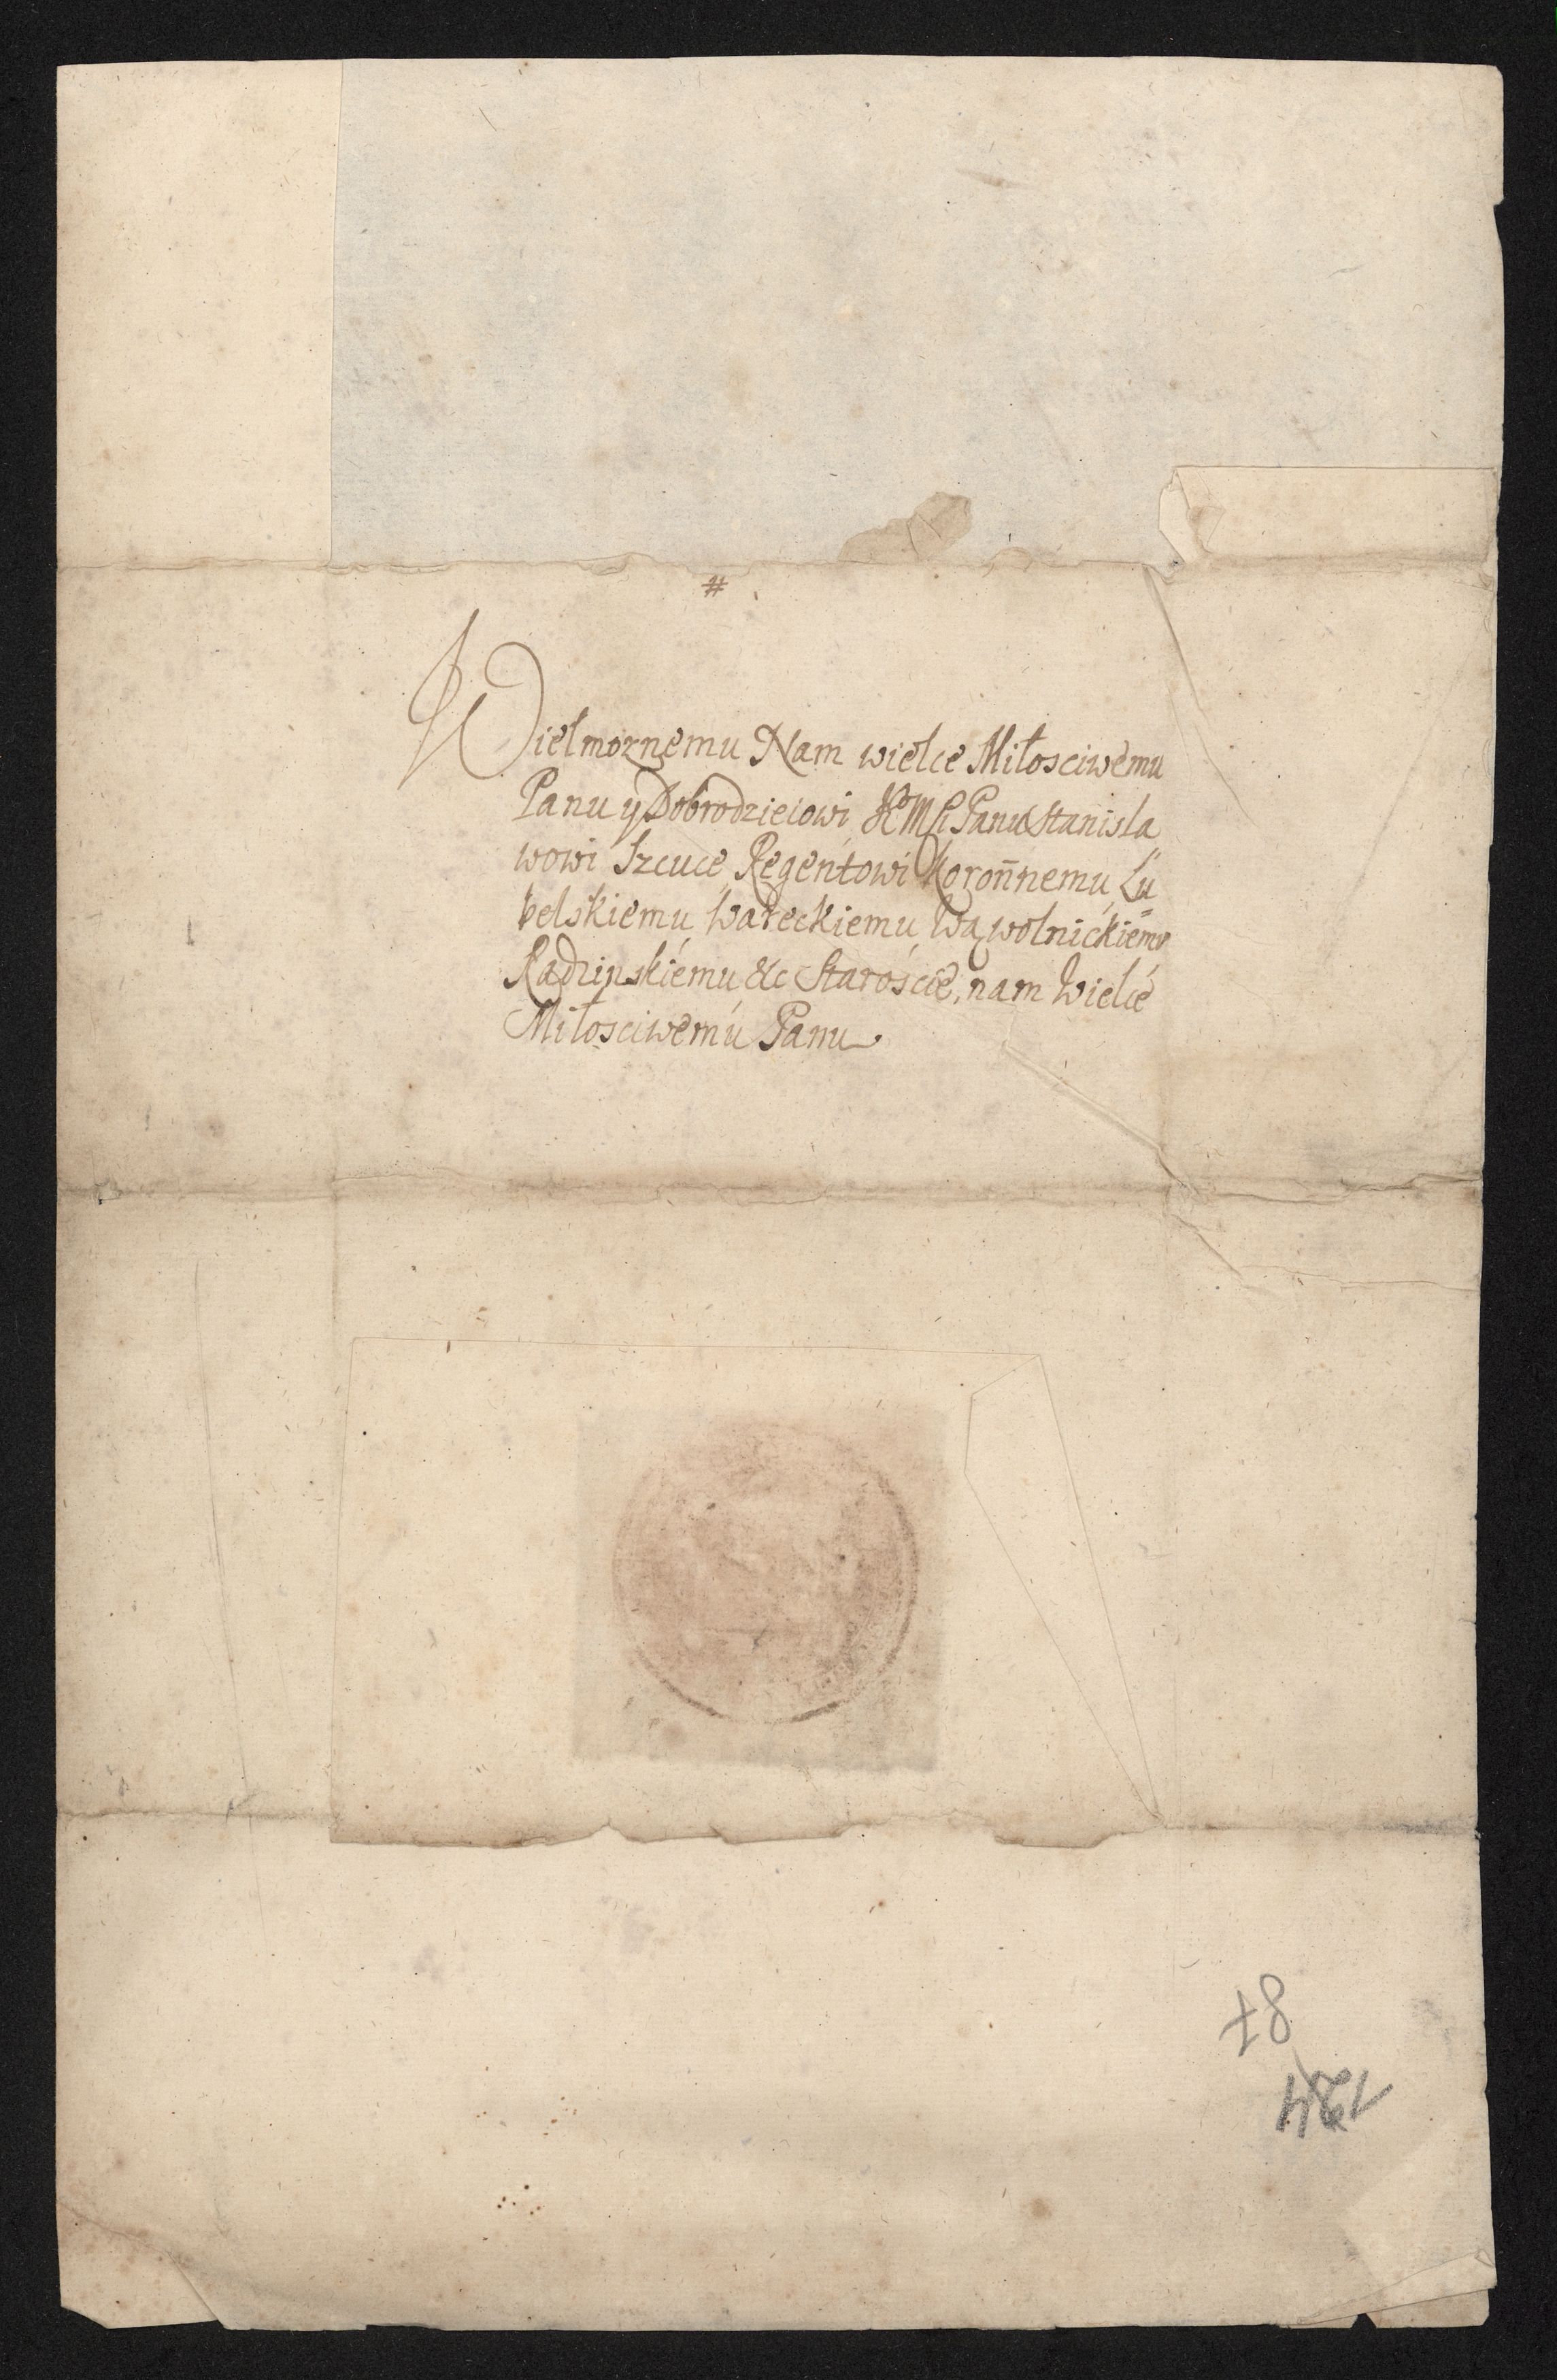 #
Wielmoznemu Nam wielce Miłosciwemu
Panu y Dobrodzieiowi Panu Stanisla
wowi Szcuce Regentowi Koronnemu, Lu
belskiemu, Wareckiemu, Wąwolnickiemu
Radzinskiemu &c Starosćie, nam Wielce
Miłosciwemu Panu